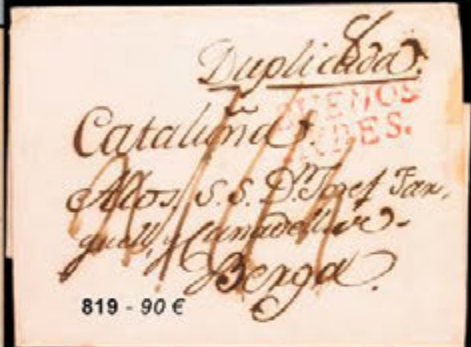 Duplicada.
BUENOS
AIRES.
Cataluña
Alos S. S. Dn. Josef Far-
guell, y Canadell
Berga.
819 - 90 €